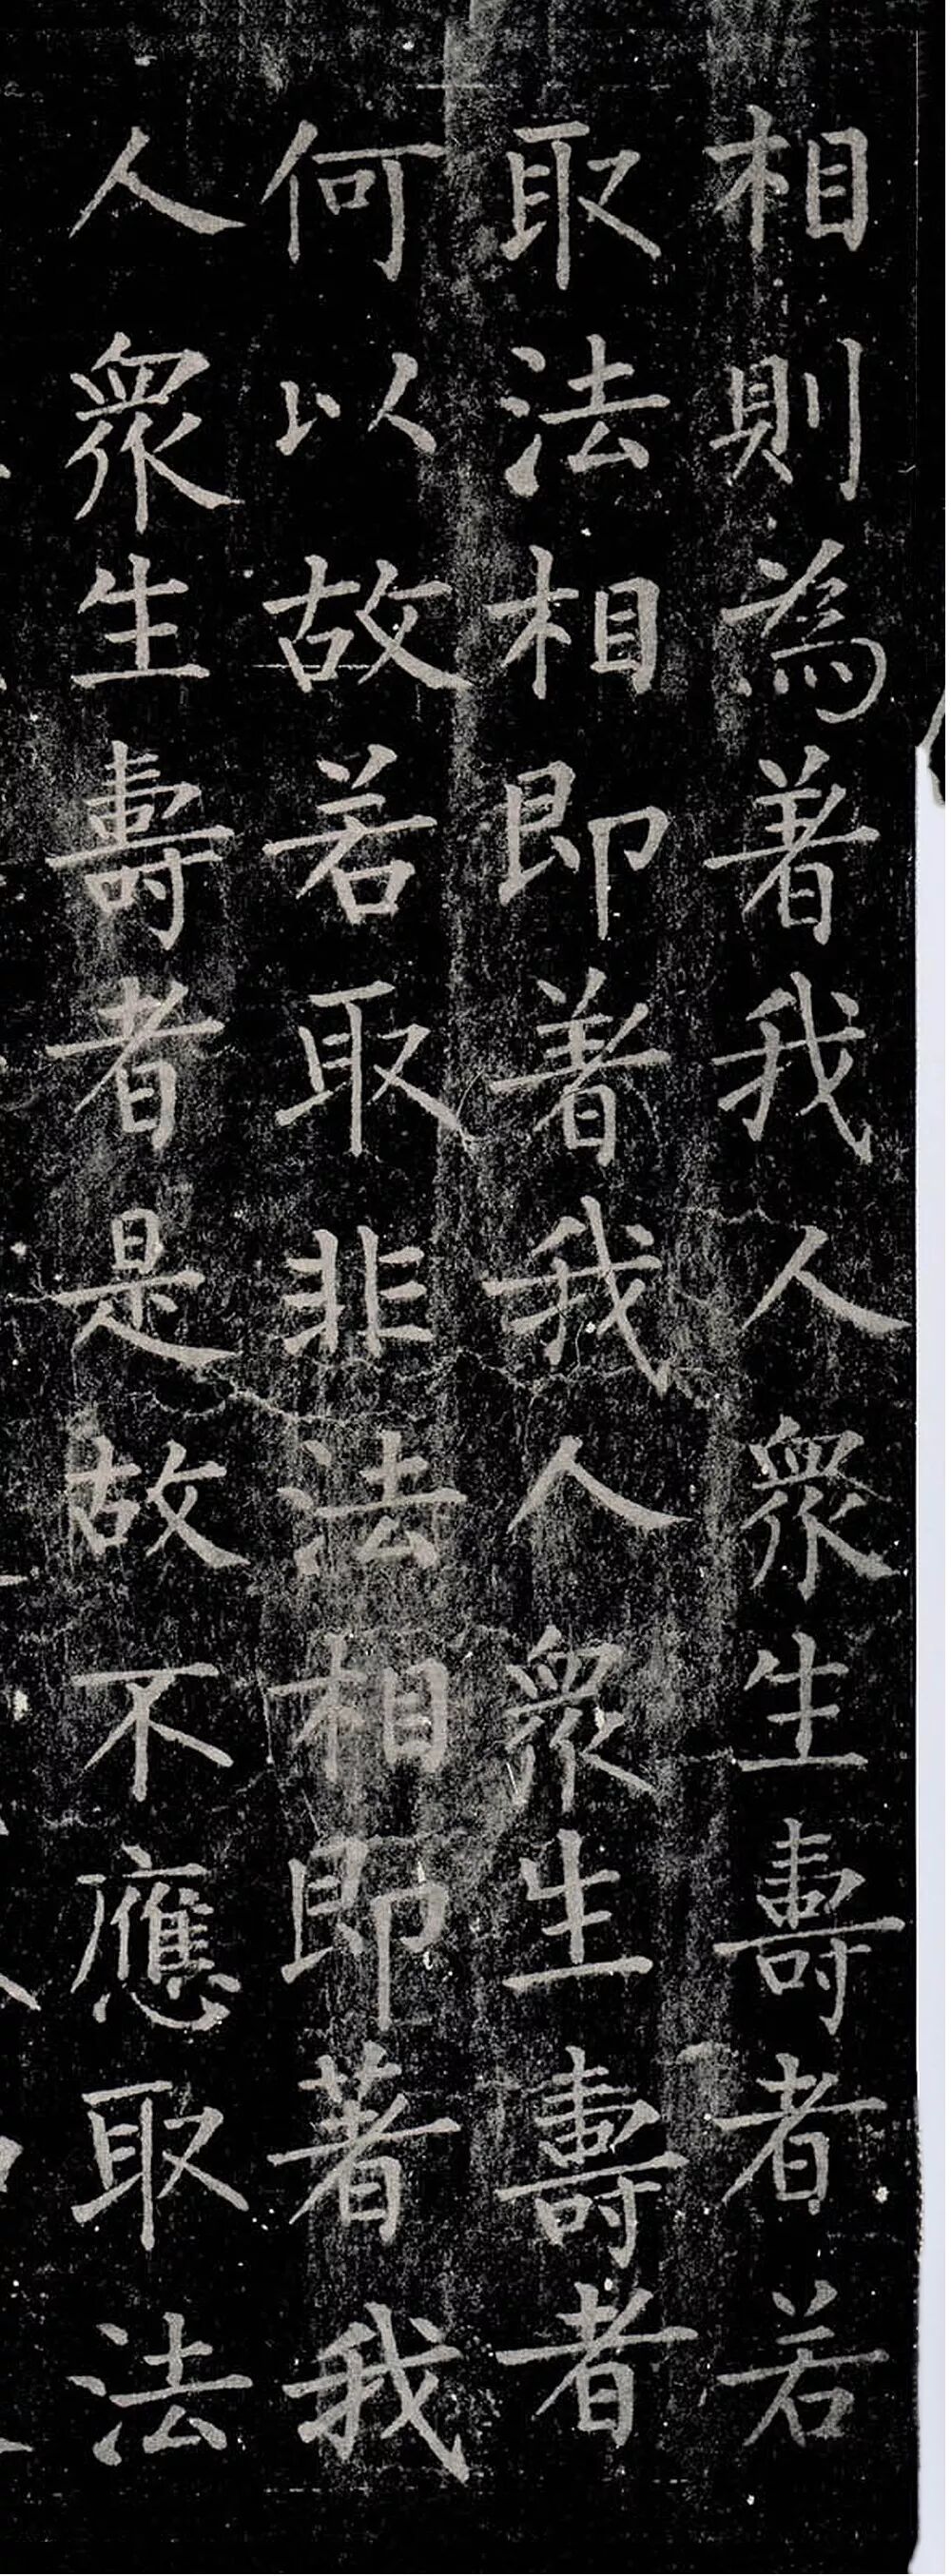 相則為著我人衆生壽者若
取法相即著我人衆生壽者
何以故若取非法相即著我
人衆生壽者是故不應取法